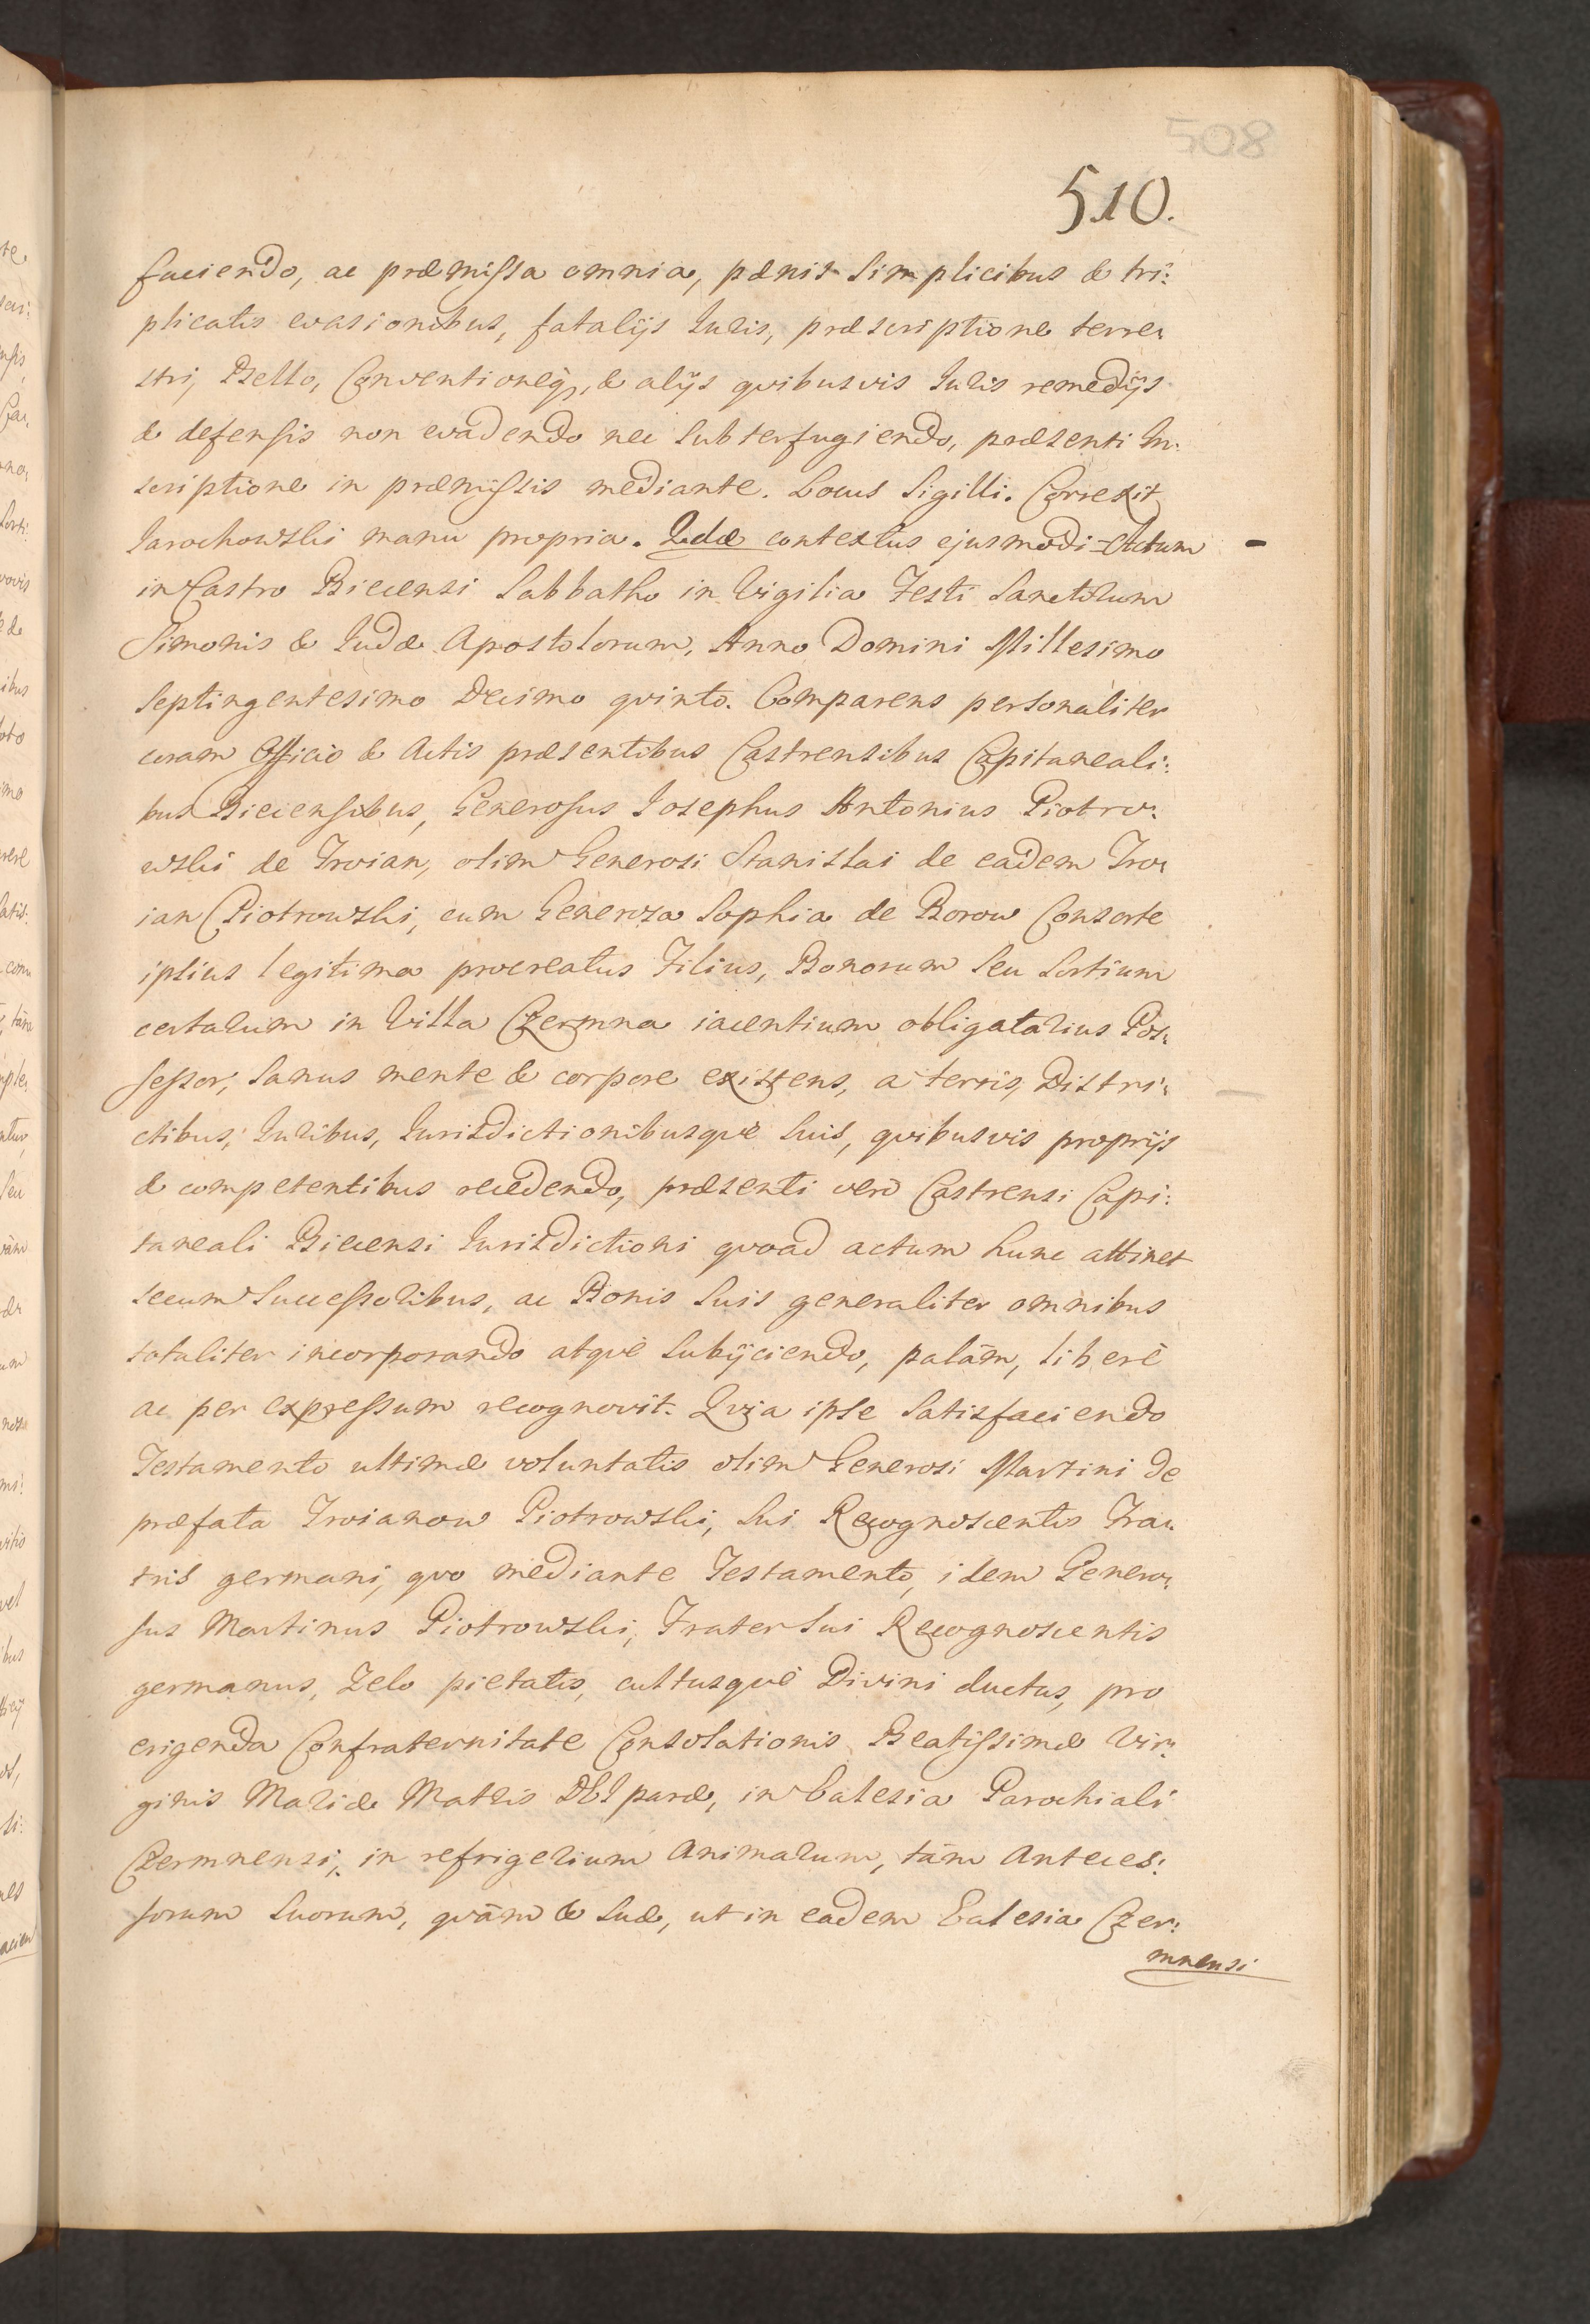 508
510.
faciendo, ac præmissa omnia, pænis simplicibus & tri:
plicatis evasionibus, fatalijs Iuris, præscriptione terre:
stri, Bello, Conventioneq, & alijs qvibusvis Iuris remedijs
& defensis non evadendo nec subterfugiendo, præsenti In:
scriptione in præmissis mediante. Locus Sigilli. Correxit
Iarochowski manu propria. 2dæ contextus ejusmodi = Actum
in Castro Biecensi Sabbatho in Vigilia Festi Sanctorum
Simonis & Iudæ Apostolorum, Anno Domini Millesimo
Septingentesimo Decimo qvinto. Comparens personaliter
coram Officio & Actis præsentibus Castrensibus Capitaneali:
bus Biecensibus, Generosus Iosephus Antonius Piotro:
wski de Troian, olim Generosi Stanislai de eadem Tro:
ian Piotrowski, cum Generosa Sophia de Borow Consorte
ipsius legitima procreatus Filius, Bonorum seu Sortium
certarum in Villa Czermna iacentium obligatarius Pos:
sessor, sanus mente & corpore existens, a terris, Distri:
ctibus, Iuribus, Iurisdictionibusqve suis, qvibusvis proprijs
& competentibus recedendo, præsenti verò Castrensi Capi:
taneali Biecensi Iurisdictioni qvoad actum hunc attinet
secum Successoribus, ac Bonis suis generaliter omnibus
totaliter incorporando atqve subijciendo, palàm, liberè
ac per expressum recognovit. Qvia ipse satisfaciendo
Testamento ultimæ voluntatis olim Generosi Martini de
præfata Troianow Piotrowski, sui Recognoscentis Fra:
tris germani, qvo mediante Testamento, idem Genero:
sus Martinus Piotrowski, Frater sui Recognoscentis
germanus, Zelo pietatis, cultusqve Divini ductus, pro
erigenda Confraternitate Consolationis Beatissimæ Vir:
ginis Mariæ Matris DEI paræ, in Eclesia Parochiali
Czermnensi, in refrigerium Animarum, tàm Anteces:
sorum suorum, qvàm & suæ, ut in eadem Eclesia Czer:
mnensi